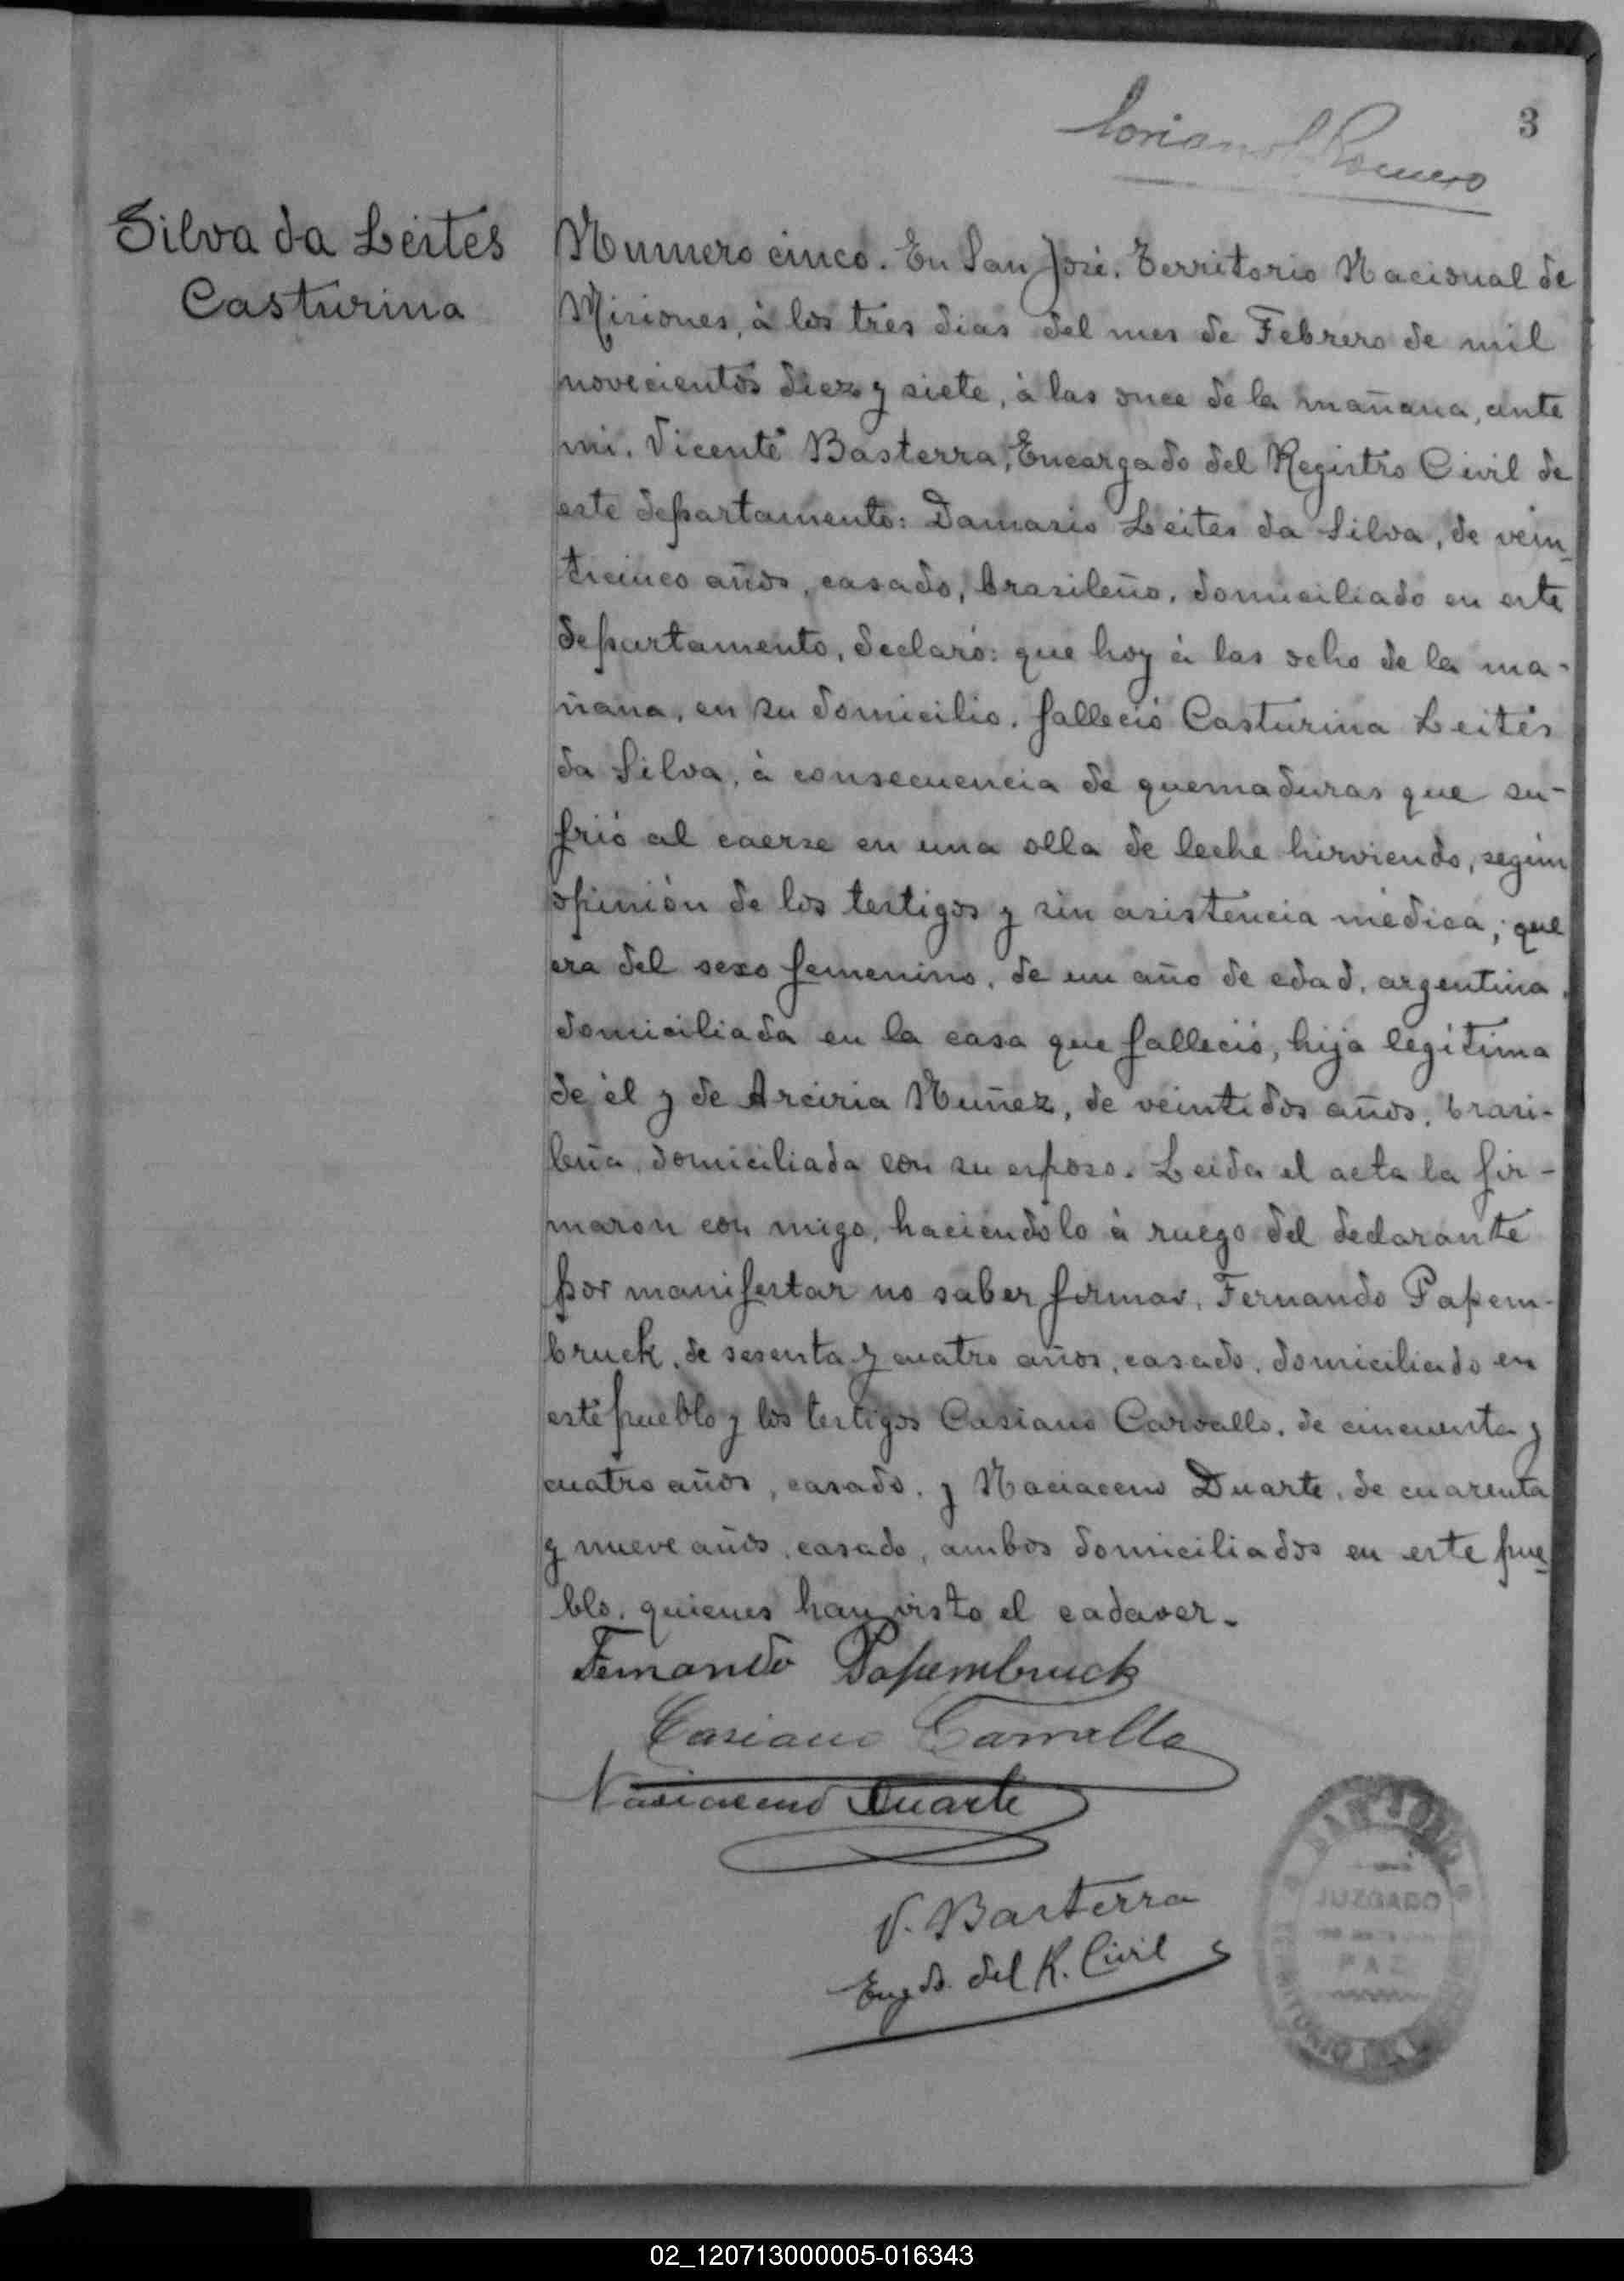 3
Silva da Leites
Casturina
Numero cinco. En San José, Territorio Nacional de
Misiones, à los tres dias del mes de Febrero de mil
novecientos diez y siete, à las once de la mañana, ante
mi, Vicente Basterra, Encargado del Registro Civil de
este departamento: Damasio Leites da Silva, de vein_
ticinco años, casado, brasileño, domiciliado en este
departamento, declaró: que hoy à las ocho de la ma-
ñana, en su domicilio, falleció Casturina Leites
da Silva, à consecuencia de quemaduras que su-
frió al caerse en una olla de leche hirviendo, según
opinión de los testigos y sin asistencia médica; que
era del sexo femenino, de un año de edad, argentina,
domiciliada en la casa que falleció, hija legítima
de él y de Arciria Nuñez, de veintidos años, brasi-
leña, domiciliada con su esposo. Leida el acta la fir-
maron con migo, haciendolo à ruego del declarante
por manifestar no saber firmar, Fernando Papem-
bruck, de sesenta y cuatro años, casado, domiciliado en
este pueblo y los testigos Casiano Carvallo, de cincuenta y
cuatro años, casado, y Naciaceno Duarte, de cuarenta
y nueve años, casado, ambos domiciliados en este pue_
blo, quienes han visto el cadaver.
Fernando Papembruck
Casiano Carvallo
Nasiaceno Duarte
V. Basterra
Engdo. del R. Civil
SAN JOSÉ
JUZGADO
PAZ
02_120713000005-016343